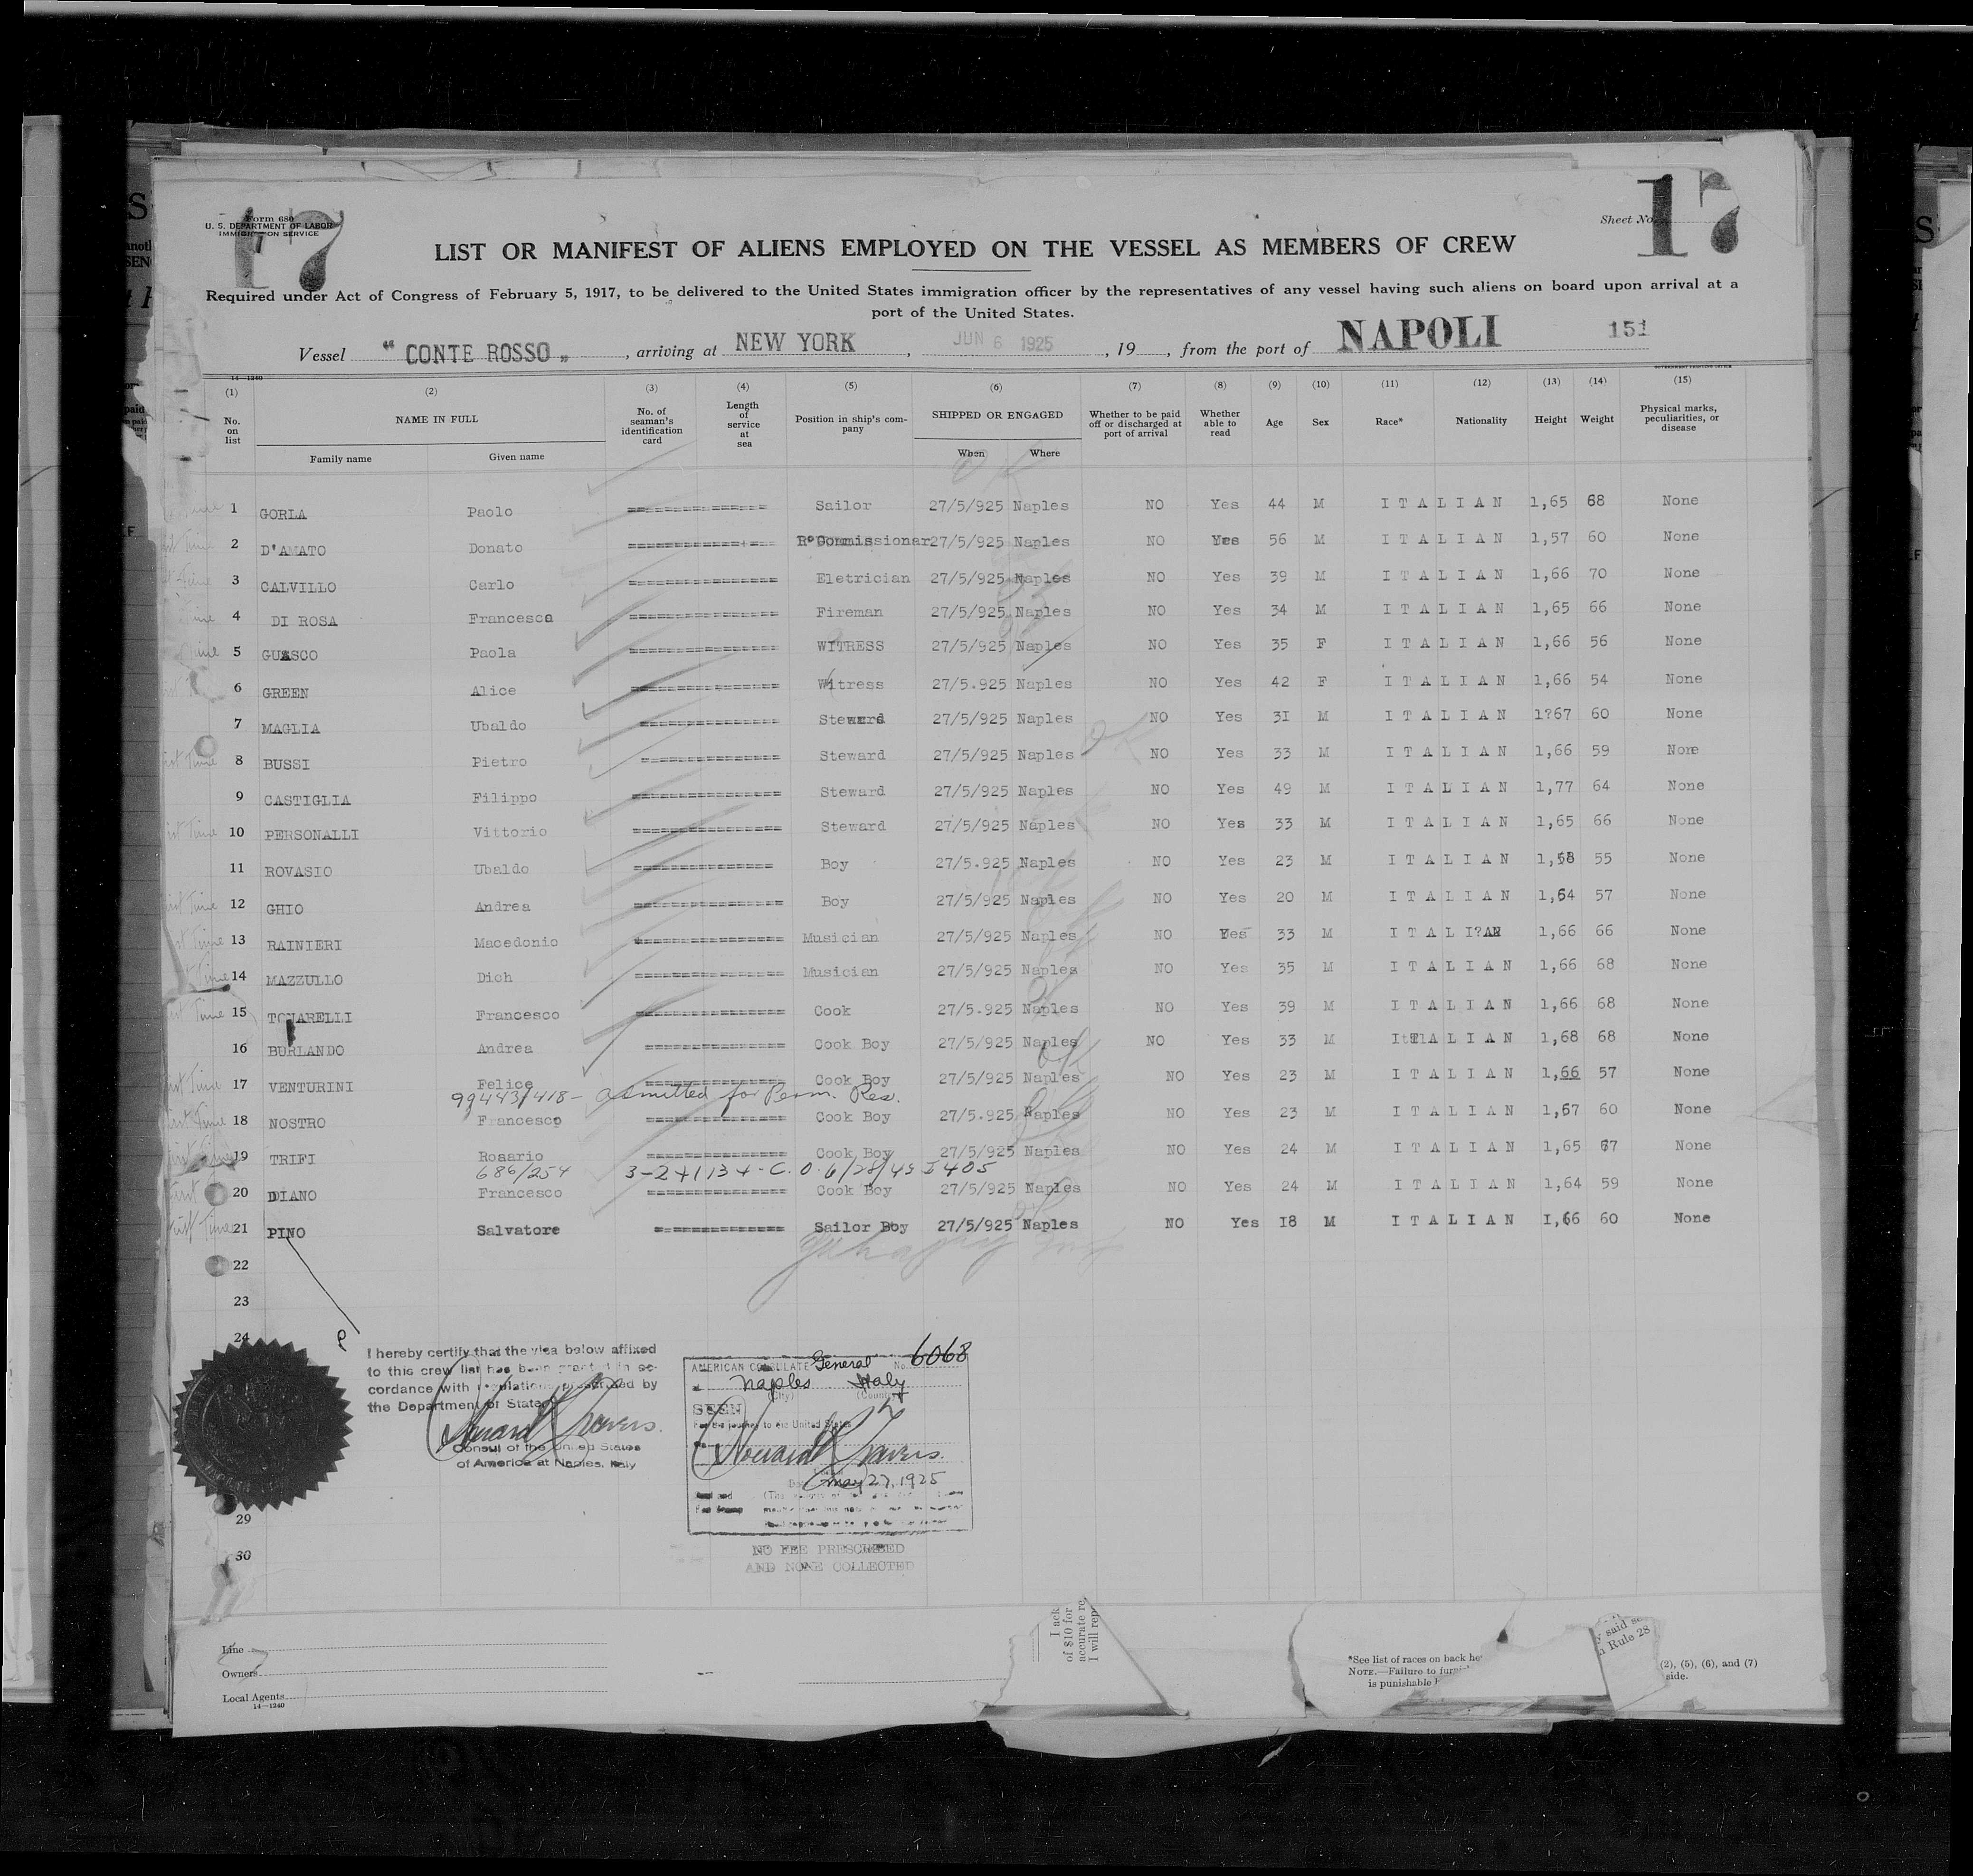 17
17
Form 680
U. S. DEPARTMENT OF LABOR
IMMIGRATION SERVICE
Sheet No.
LIST OR MANIFEST OF ALIENS EMPLOYED ON THE VESSEL AS MEMBERS OF CREW
Required under Act of Congress of February 5, 1917, to be delivered to the United States immigration officer by the representatives of any vessel having such aliens on board upon arrival at a
port of the United States.
Vessel " CONTE ROSSO „ , arriving at NEW YORK , JUN 6 1925 , 19 , from the port of NAPOLI 151
14—1240
(1) (2) (3) (4) (5) (6) (7) (8) (9) (10) (11) (12) (13) (14) (15)
No. on list NAME IN FULL No. of seaman's identification card Length of service at sea Position in ship's company SHIPPED OR ENGAGED Whether to be paid off or discharged at port of arrival Whether able to read Age Sex Race* Nationality Height Weight Physical marks, peculiarities, or disease
Family name Given name When Where
1 GORLA Paolo Sailor 27/5/925 Naples NO Yes 44 M ITALIAN 1,65 68 None
2 D'AMATO Donato R°Commissionar 27/5/925 Naples NO Yes 56 M ITALIAN 1,57 60 None
3 CALVILLO Carlo Eletrician 27/5/925 Naples NO Yes 39 M ITALIAN 1,66 70 None
4 DI ROSA Francesco Fireman 27/5/925 Naples NO Yes 34 M ITALIAN 1,65 66 None
5 GUASCO Paola WITRESS 27/5/925 Naples NO Yes 35 F ITALIAN 1,66 56 None
6 GREEN Alice Witress 27/5.925 Naples NO Yes 42 F ITALIAN 1,66 54 None
7 MAGLIA Ubaldo Steward 27/5/925 Naples NO Yes 31 M ITALIAN 1?67 60 None
8 BUSSI Pietro Steward 27/5/925 Naples NO Yes 33 M ITALIAN 1,66 59 None
9 CASTIGLIA Filippo Steward 27/5/925 Naples NO Yes 49 M ITALIAN 1,77 64 None
10 PERSONALLI Vittorio Steward 27/5/925 Naples NO Yes 33 M ITALIAN 1,65 66 None
11 ROVASIO Ubaldo Boy 27/5.925 Naples NO Yes 23 M ITALIAN 1,58 55 None
12 GHIO Andrea Boy 27/5/925 Naples NO Yes 20 M ITALIAN 1,64 57 None
13 RAINIERI Macedonio Musician 27/5/925 Naples NO Yes 33 M ITALI?AN 1,66 66 None
14 MAZZULLO Dich Musician 27/5/925 Naples NO Yes 35 M ITALIAN 1,66 68 None
15 TONARELLI Francesco Cook 27/5.925 Naples NO Yes 39 M ITALIAN 1,66 68 None
16 BURLANDO Andrea Cook Boy 27/5/925 Naples NO Yes 33 M ITALIAN 1,68 68 None
17 VENTURINI Felice Cook Boy 27/5/925 Naples NO Yes 23 M ITALIAN 1,66 57 None
99443/418 - Admitted for Perm. Res.
18 NOSTRO Francesco Cook Boy 27/5.925 Naples NO Yes 23 M ITALIAN 1,67 60 None
19 TRIFI Rosario Cook Boy 27/5/925 Naples NO Yes 24 M ITALIAN 1,65 67 None
686/254 C.O. 6/28/45 I 405
20 DIANO Francesco Cook Boy 27/5/925 Naples NO Yes 24 M ITALIAN 1,64 59 None
21 PINO Salvatore Sailor Boy 27/5/925 Naples NO Yes 18 M ITALIAN I,66 60 None
22
23
24
29
30
I hereby certify that the visa below affixed
to this crew list has been granted in ac-
cordance with regulations prescribed by
the Department of State
Howard Travers.
Consul of the United States
of America at Naples, Italy
AMERICAN CONSULATE General No. 6068
at Naples Italy
(City) (Country)
SEEN
For the journey to the United States
Howard Travers.
May 27, 1925
NO FEE PRESCRIBED
AND NONE COLLECTED
Line
Owners
Local Agents
14—1240
I ack
of $10 for
accurate re
I will rep
*See list of races on back he
NOTE.—Failure to furni
is punishable
y said
Rule 28
(2), (5), (6), and (7)
side.